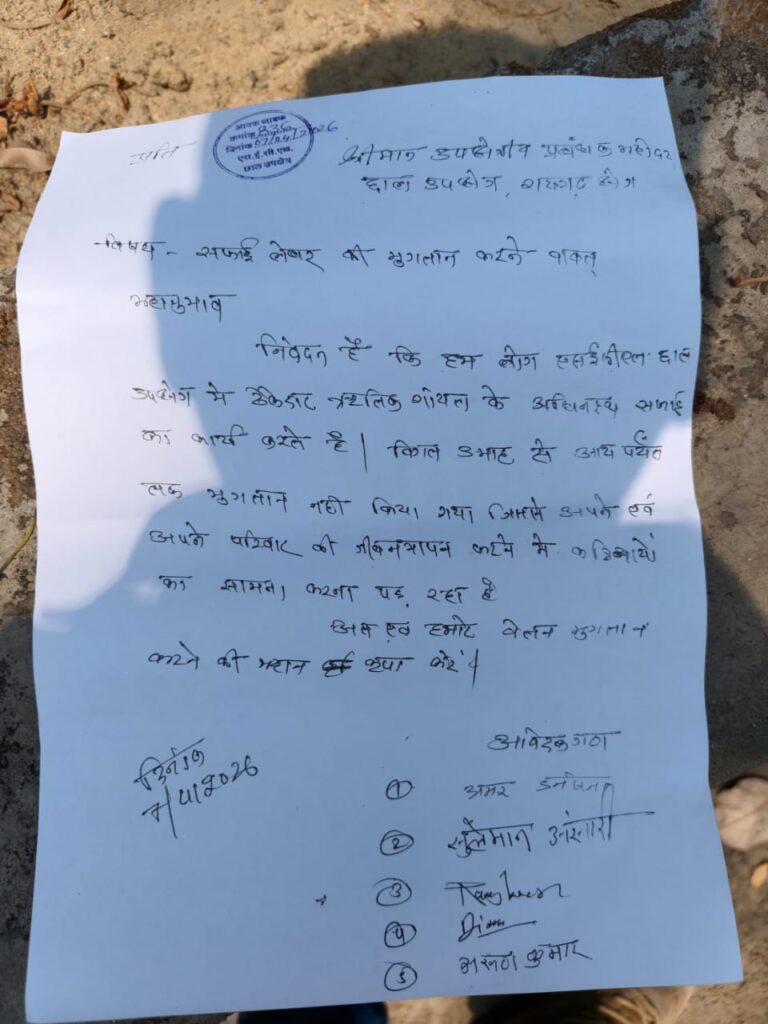 आवक जावक
क्रमांक 836
दिनांक 07/04/2026
एस.ई.सी.एल.
छाल उपक्षेत्र
प्रति
श्रीमान उपक्षेत्रीय प्रबंधक महोदय
छाल उपक्षेत्र, रायगढ़ क्षेत्र
विषय - सफाई लेबर की भुगतान करने बाबत्
महानुभाव
निवेदन है कि हम लोग एसईसीएल छाल
उपक्षेत्र मे ठेकेदार के अधिनस्थ सफाई
का कार्य करते है| विगत 3 माह से आय पर्यंत
तक भुगतान नही किया गया जिससे अपने एवं
अपने परिवार की जीवनयापन करने मे कठिनायों
का सामना करना पड़ रहा है
अत एवं हमारे वेतन भुगतान
करने की महान कृपा करें|
दिनांक
7/4/2026
आवेदकगण
① अमर
② सुलेमान अंसारी
③
④
⑤ कुमार